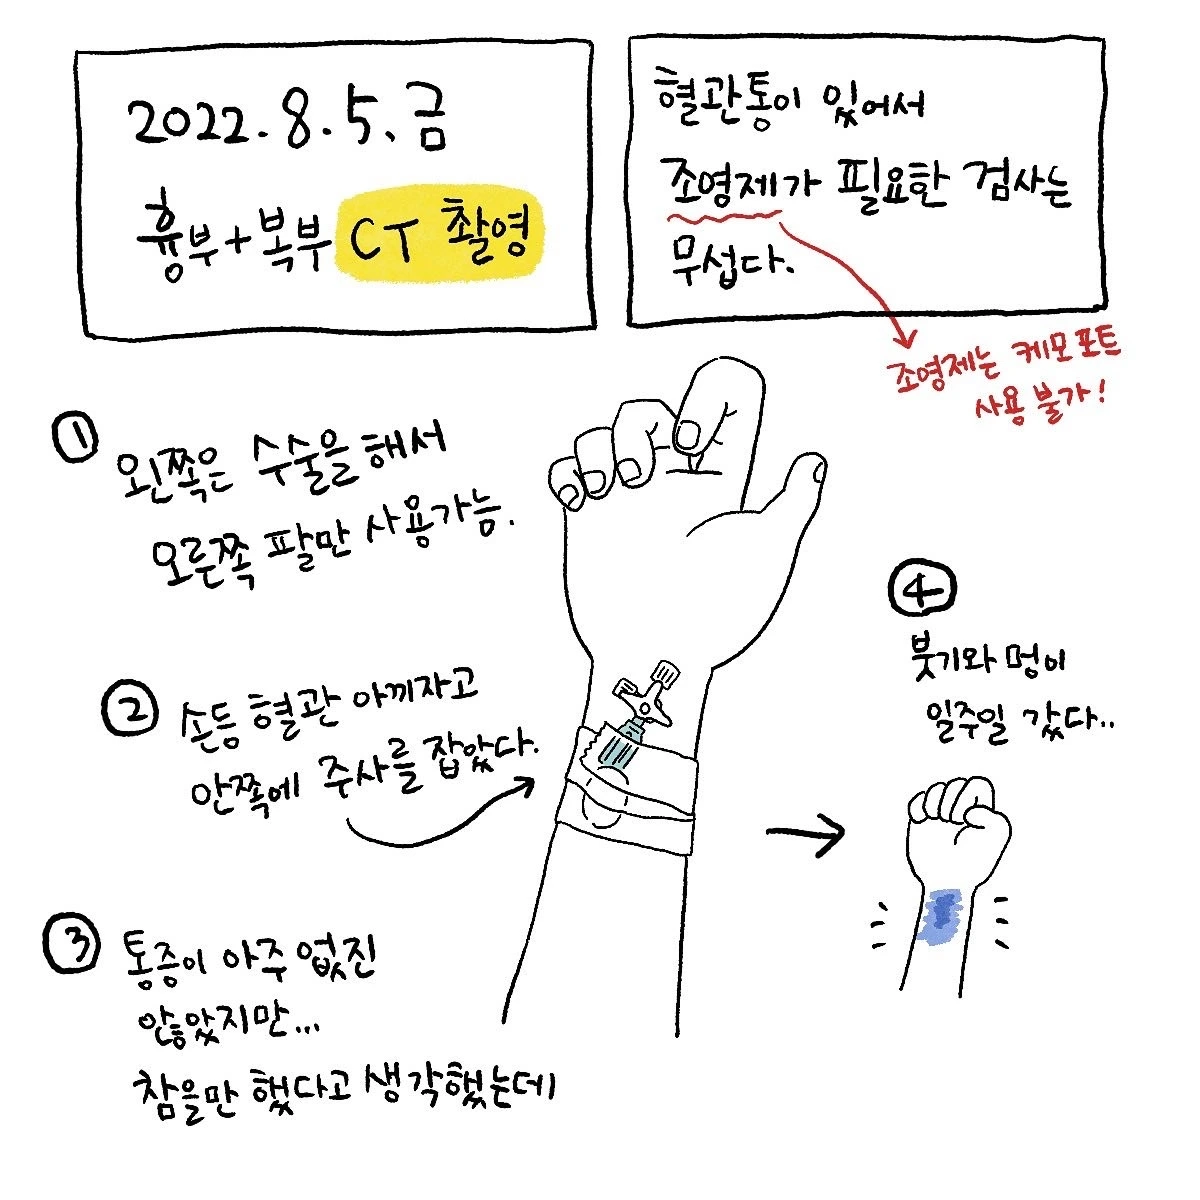 2022. 8. 5. 금
흉부+복부 CT 촬영
혈관통이 있어서
조영제가 필요한 검사는
무섭다.
조영제는 케모포트
사용 불가!
① 왼쪽은 수술을 해서
오른쪽 팔만 사용가능.
② 손등 혈관 아끼자고
안쪽에 주사를 잡았다.
③ 통증이 아주 없진
않았지만...
참을만 했다고 생각했는데
④
붓기와 멍이
일주일 갔다..